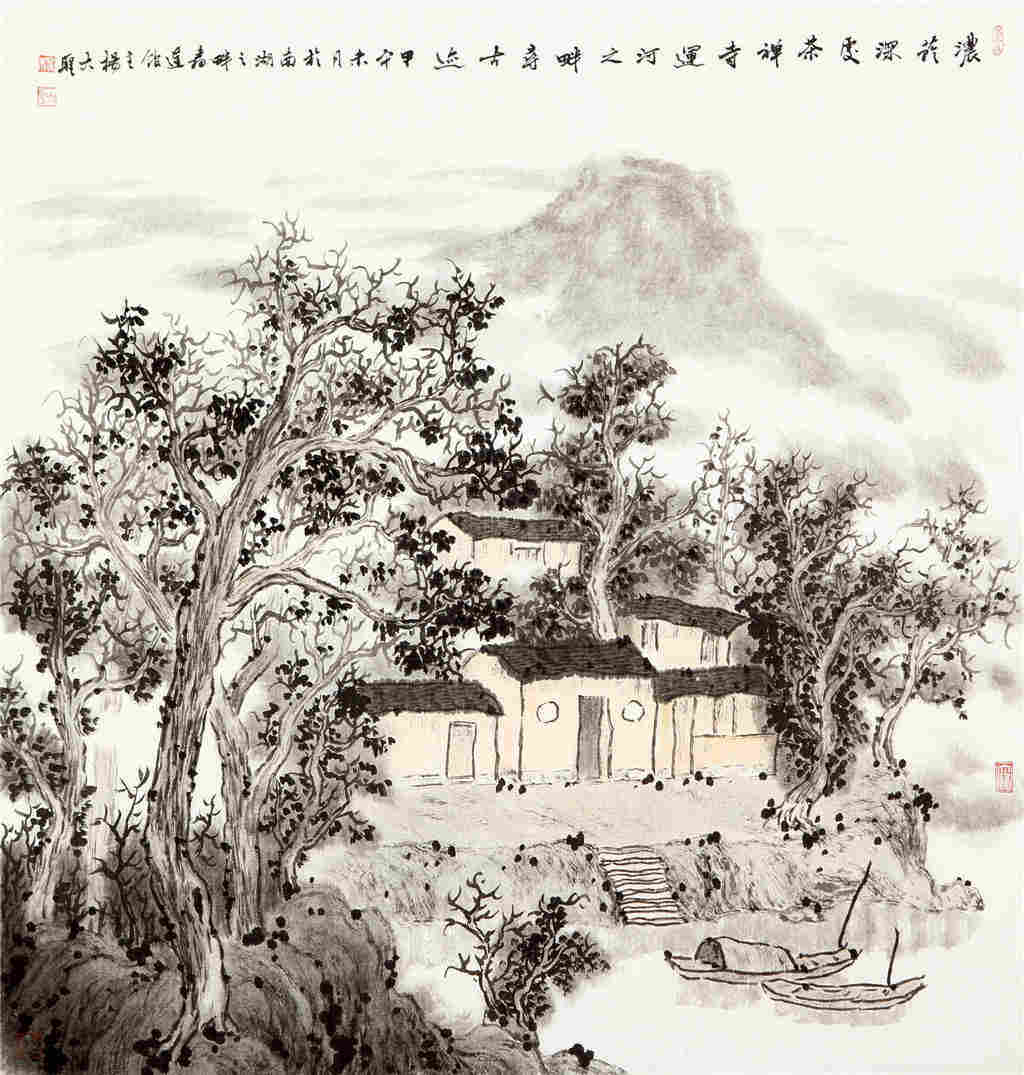 濃荫深處茶禅寺運河之畔尋古迹甲午未月於南湖之畔蓮館主楊大